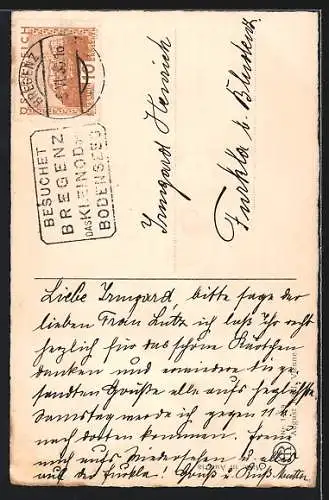 ÖSTERREICH
BREGENZ
BESUCHET
BREGENZ
DAS KLEINOD D.
BODENSEES
Irmgard Heinrich
Furkla b. Bludenz
Liebe Irmgard bitte sage der
lieben Frau Lutz ich laß Ihr recht
herzlich für das schöne Kärtchen
danken und erwidere die ge-
sandten Grüße alle aufs herzlichste
Samstag werde ich gegen 11 h
nach dorten kommen. Freue
mich aufs Wiedersehen
auf der Furkla! Gruß u. Kuß